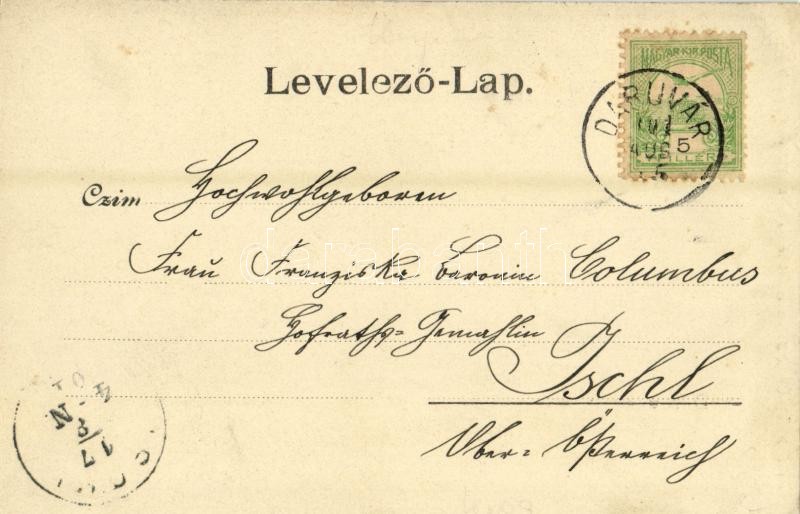 Levelező-Lap.
MAGYAR KIR. POSTA
FILLÉR
DARUVÁR
AUG 5
Czim Hochwohlgeboren
Frau Franziska Baronin Columbus
Hofraths-Gemahlin
Ischl
Ober-Österreich
darabanth